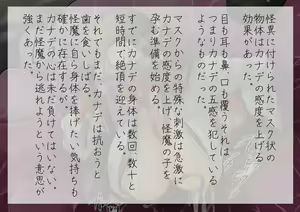 怪異に付けられたマスク状の
物体はカナデの感度を上げる
効果があった。
目も耳も鼻、口も覆うそれは
つまりカナデの五感を犯している
ようなものだった。
マスクからの特殊な刺激は急激に
カナデの感度を上げ 怪魔の子を
孕む準備を始める。
すでにカナデの身体は数回、数十と
短時間で絶頂を迎えている。
それでもまだ、カナデは抗おうと
歯を食いしばる。
怪魔に自ら身体を捧げたい気持ちも
確かに存在するが、
カナデの心は未だ負けてはいない。
まだ怪魔から逃れようという意思が
強くあった。